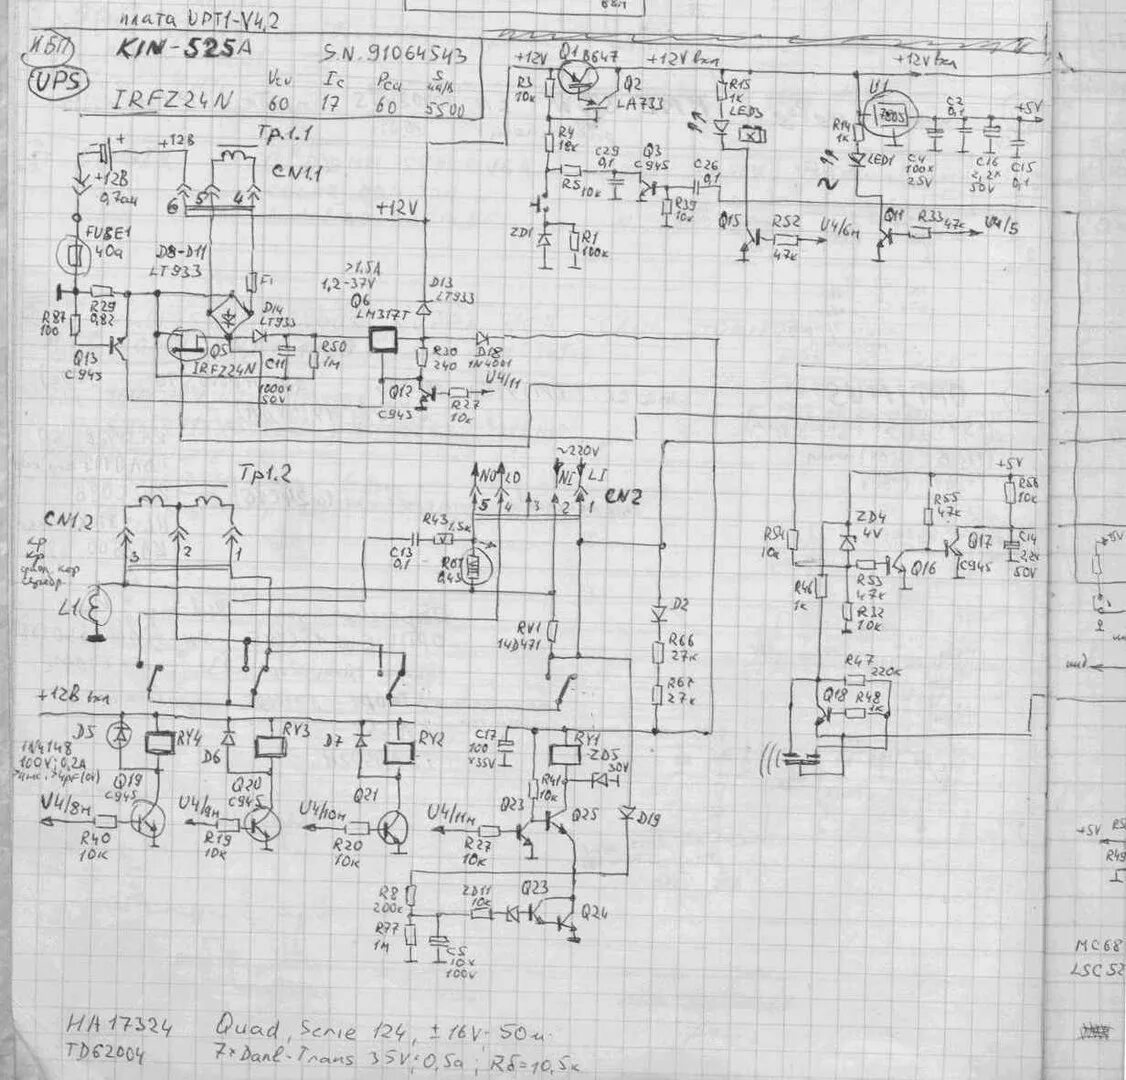 плата UPT1-V4,2
ИБП
UPS
KIN-525A
S.N.91064543
IRFZ24N
Ic
60
17
60
5500
Тр.1.1
+12В
CN1.1
+12В
6
5
4
FUSE1
40а
D8-D11
LT933
F1
R87
100
R29
0,82
D14
LT933
Q13
C945
Q5
IRFZ24N
C11
1000x
50V
R50
1M
>1,5A
1,2-37V
Q6
LM317T
+12V
D13
LT933
R30
240
D18
1N4001
Q12
C945
R27
10к
U4/11
+12V
Q1
B647
+12V вкл
Q2
LA733
R3
10к
R4
R5
10к
C29
0,1
Q3
C945
C26
0,1
R39
10к
ZD1
R1
100к
R15
1к
LED3
Q15
R52
47к
U4/6н
R14
1к
LED1
Q11
R33
47к
U4/5
+12V вкл
U1
7805
C4
100x
25V
C2
0,1
C16
2,2x
50V
C15
0,1
+5V
Тр1.2
CN1.2
3
2
1
L1
NO
LO
~220V
NI
LI
5
4
3
2
1
CN2
R43
1,5к
C13
0,1
RV1
14D471
D2
R66
27к
R67
27к
R54
10к
ZD4
4V
R46
1к
R53
47к
R32
10к
Q16
R55
47к
Q17
C945
+5V
R56
10к
C14
2,2x
50V
R47
220к
Q18
R48
1к
+12В вкл
D5
1N4148
100V; 0,2A
RY4
Q19
C945
U4/8н
R40
10к
D6
RY3
Q20
C945
U4/9н
R19
10к
D7
RY2
Q21
U4/10н
R20
10к
C17
100
x35V
RY1
ZD5
30V
R41
10к
Q23
Q25
U4/11н
R27
10к
D19
R8
200к
R77
1M
C5
10x
100V
ZD11
10к
Q23
Q24
+5V
MC68
LSC52
HA17324 Quad, Serie 124, ±16V-50м
TD62004 7xDarl-Trans 35V; 0,5a; Rб=10,5к